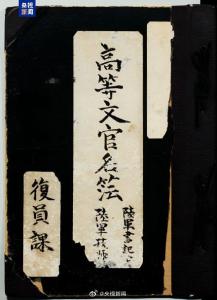 央视新闻
高等文官名簿
陸軍書記
陸軍技師
復員課
@央视新闻